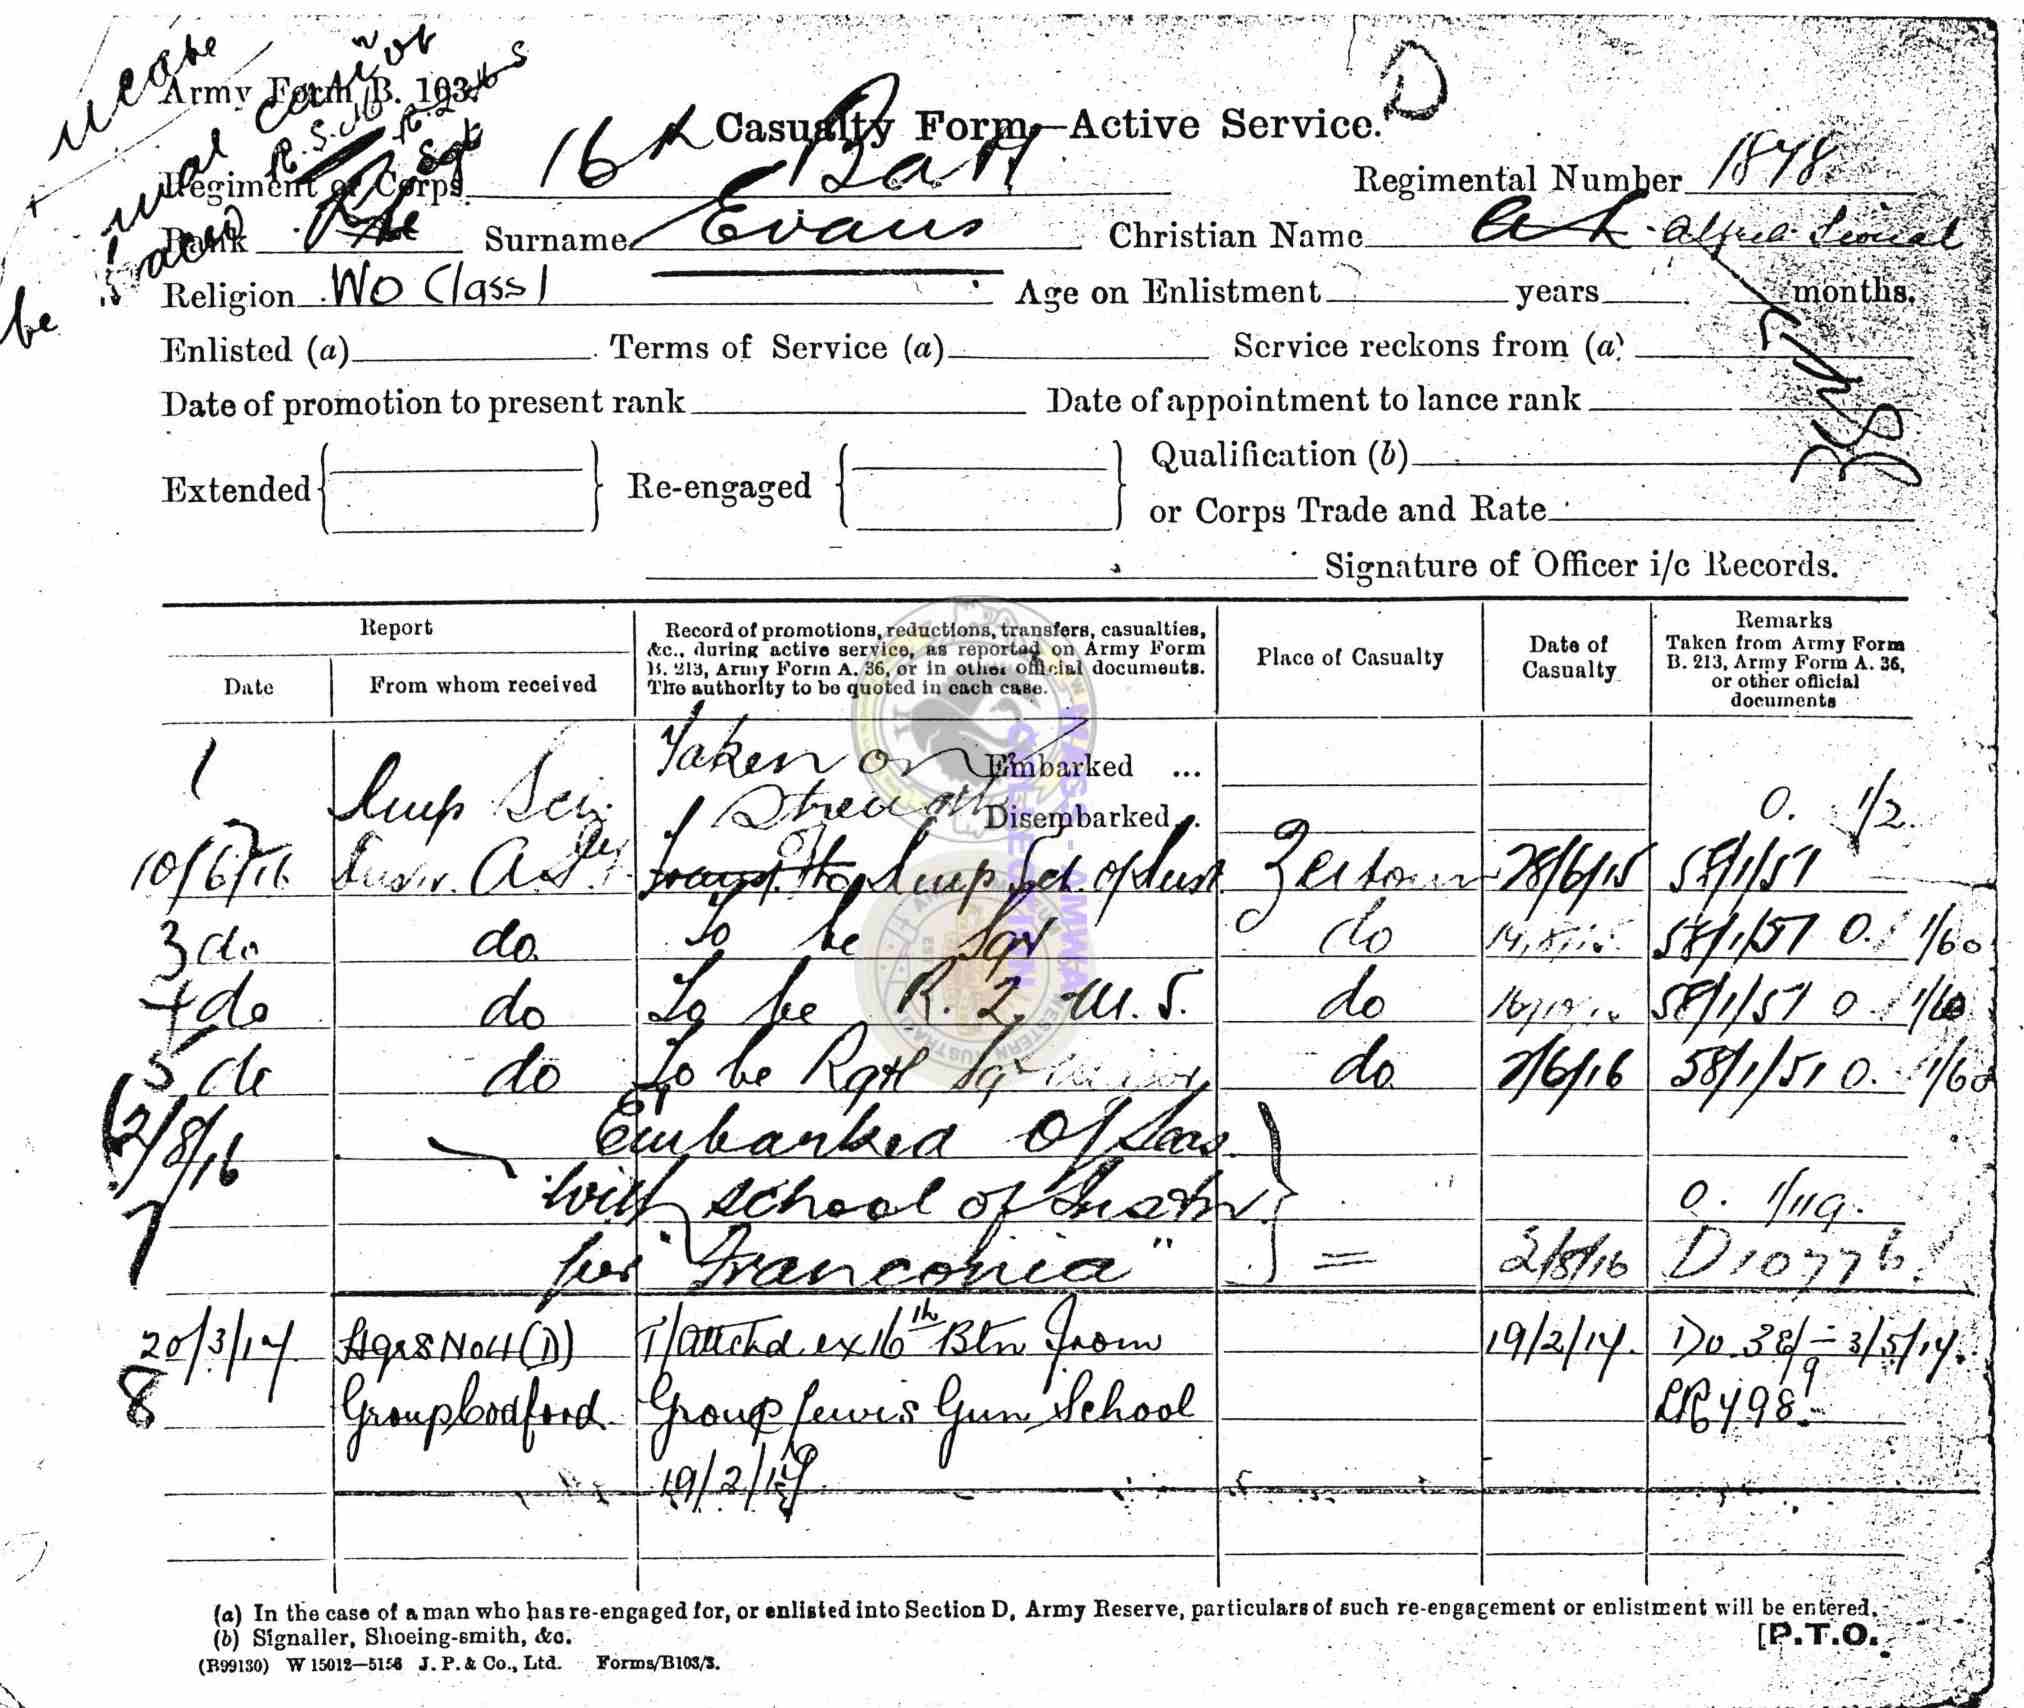 Army Form B. 103.
Casualty Form—Active Service.
D
Regiment or Corps 16th Batt Regimental Number 1878
Rank Surname Evans Christian Name A L Alfred Lional
Religion WO Class 1 Age on Enlistment years months.
Enlisted (a) Terms of Service (a) Service reckons from (a)
Date of promotion to present rank Date of appointment to lance rank
Extended Re-engaged Qualification (b)
or Corps Trade and Rate
Signature of Officer i/c Records.
Report
Date From whom received
Record of promotions, reductions, transfers, casualties, &c., during active service, as reported on Army Form B. 213, Army Form A. 36, or in other official documents. The authority to be quoted in each case.
Place of Casualty
Date of Casualty
Remarks
Taken from Army Form B. 213, Army Form A. 36, or other official documents
1 Taken on Embarked ...
Imp Sch Strength Disembarked .. O. 1/2.
10/6/16 Imp Sch. of Inst. Zeitoun 28/6/15 58/1/51
3 do do To be Sgt do 58/1/51 O. 1/60
4 do do To be R. Q. M. S. do 58/1/51 O. 1/60
5 do do To be Rgtl Sgt Major do 2/6/16 58/1/51 O. 1/60
2/8/16 Embarked O/Seas
7 with School of Instn O. 1/119.
per "Franconia" = 2/8/16 D10776
20/3/17 Hqrs No4 (D) T/Attchd ex 16th Btn from 19/2/17. Do 38/- 3/5/17.
8 Group Codford Group Lewis Gun School LR 498
19/2/17
(a) In the case of a man who has re-engaged for, or enlisted into Section D, Army Reserve, particulars of such re-engagement or enlistment will be entered.
(b) Signaller, Shoeing-smith, &c.
[P.T.O.
(R99130) W 15012—5156 J. P. & Co., Ltd. Forms/B103/3.